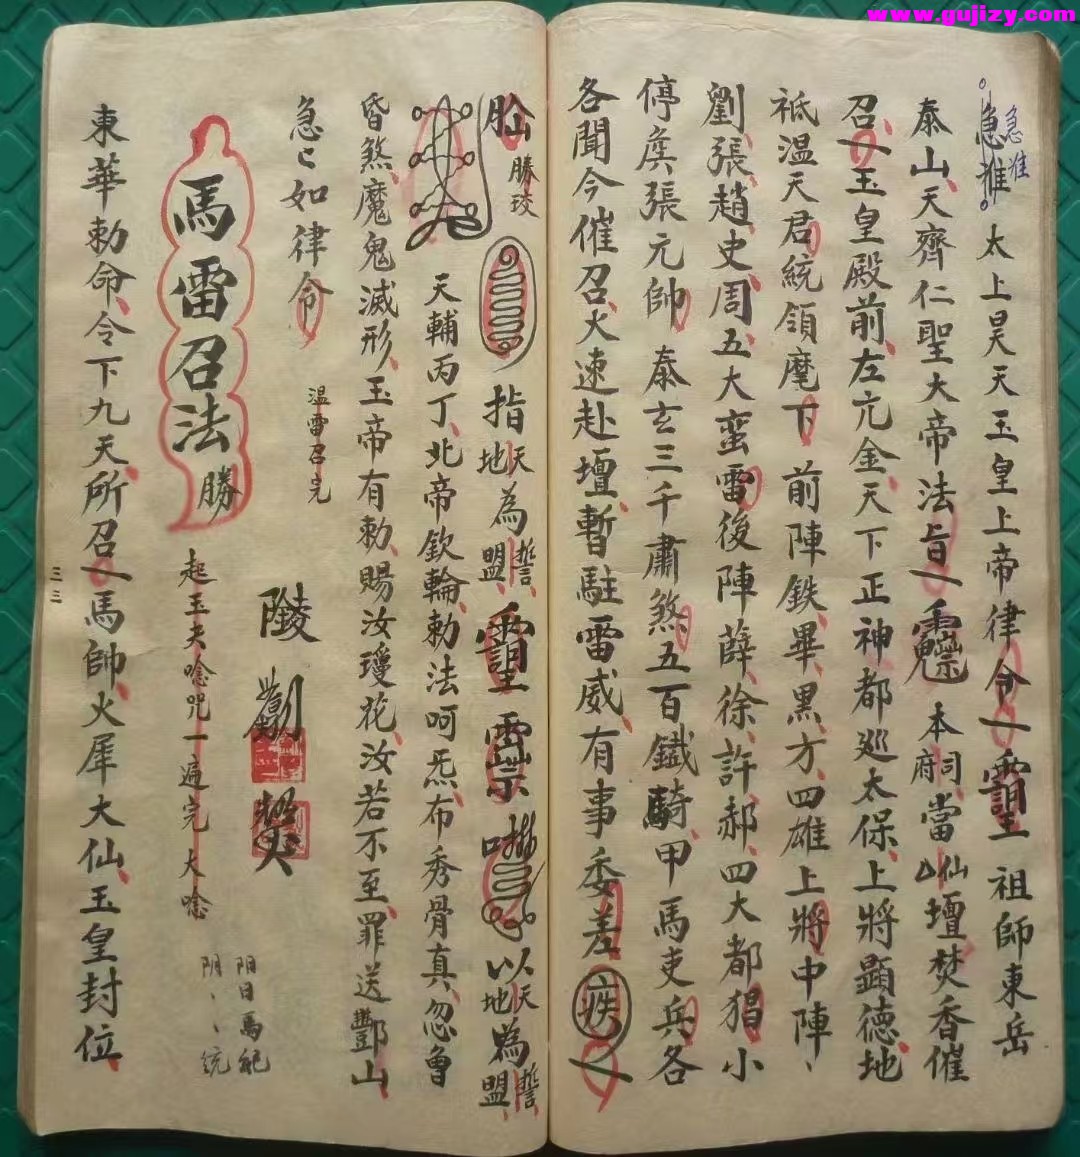 www.gujizy.com
急准
太上昊天玉皇上帝律令 祖師東岳
泰山天齊仁聖大帝法旨 本司府當仙壇焚香催
召 玉皇殿前左亢金天下正神都巡太保上將顯德地
祇温天君統領麾下前陣鉄畢黑方四雄上將中陣
劉張趙史周五大蛮雷後陣薛徐許郝四大都猖小
停虞張元帥 泰玄三千肅煞五百鐵騎甲馬吏兵各
各聞今催召大速赴壇暫駐雷威有事委差 疾
勝
指天地為盟誓 以天地為盟誓
天輔丙丁北帝欽輪勅法呵炁布秀骨真忽會
昏煞魔鬼滅形玉帝有勅賜汝瓊花汝若不至罪送酆山
急々如律令 温雷召完
馬雷召法 勝
起玉夫唸咒一遍完大唸
三三
東華勅命令下九天所召 馬帥火犀大仙玉皇封位